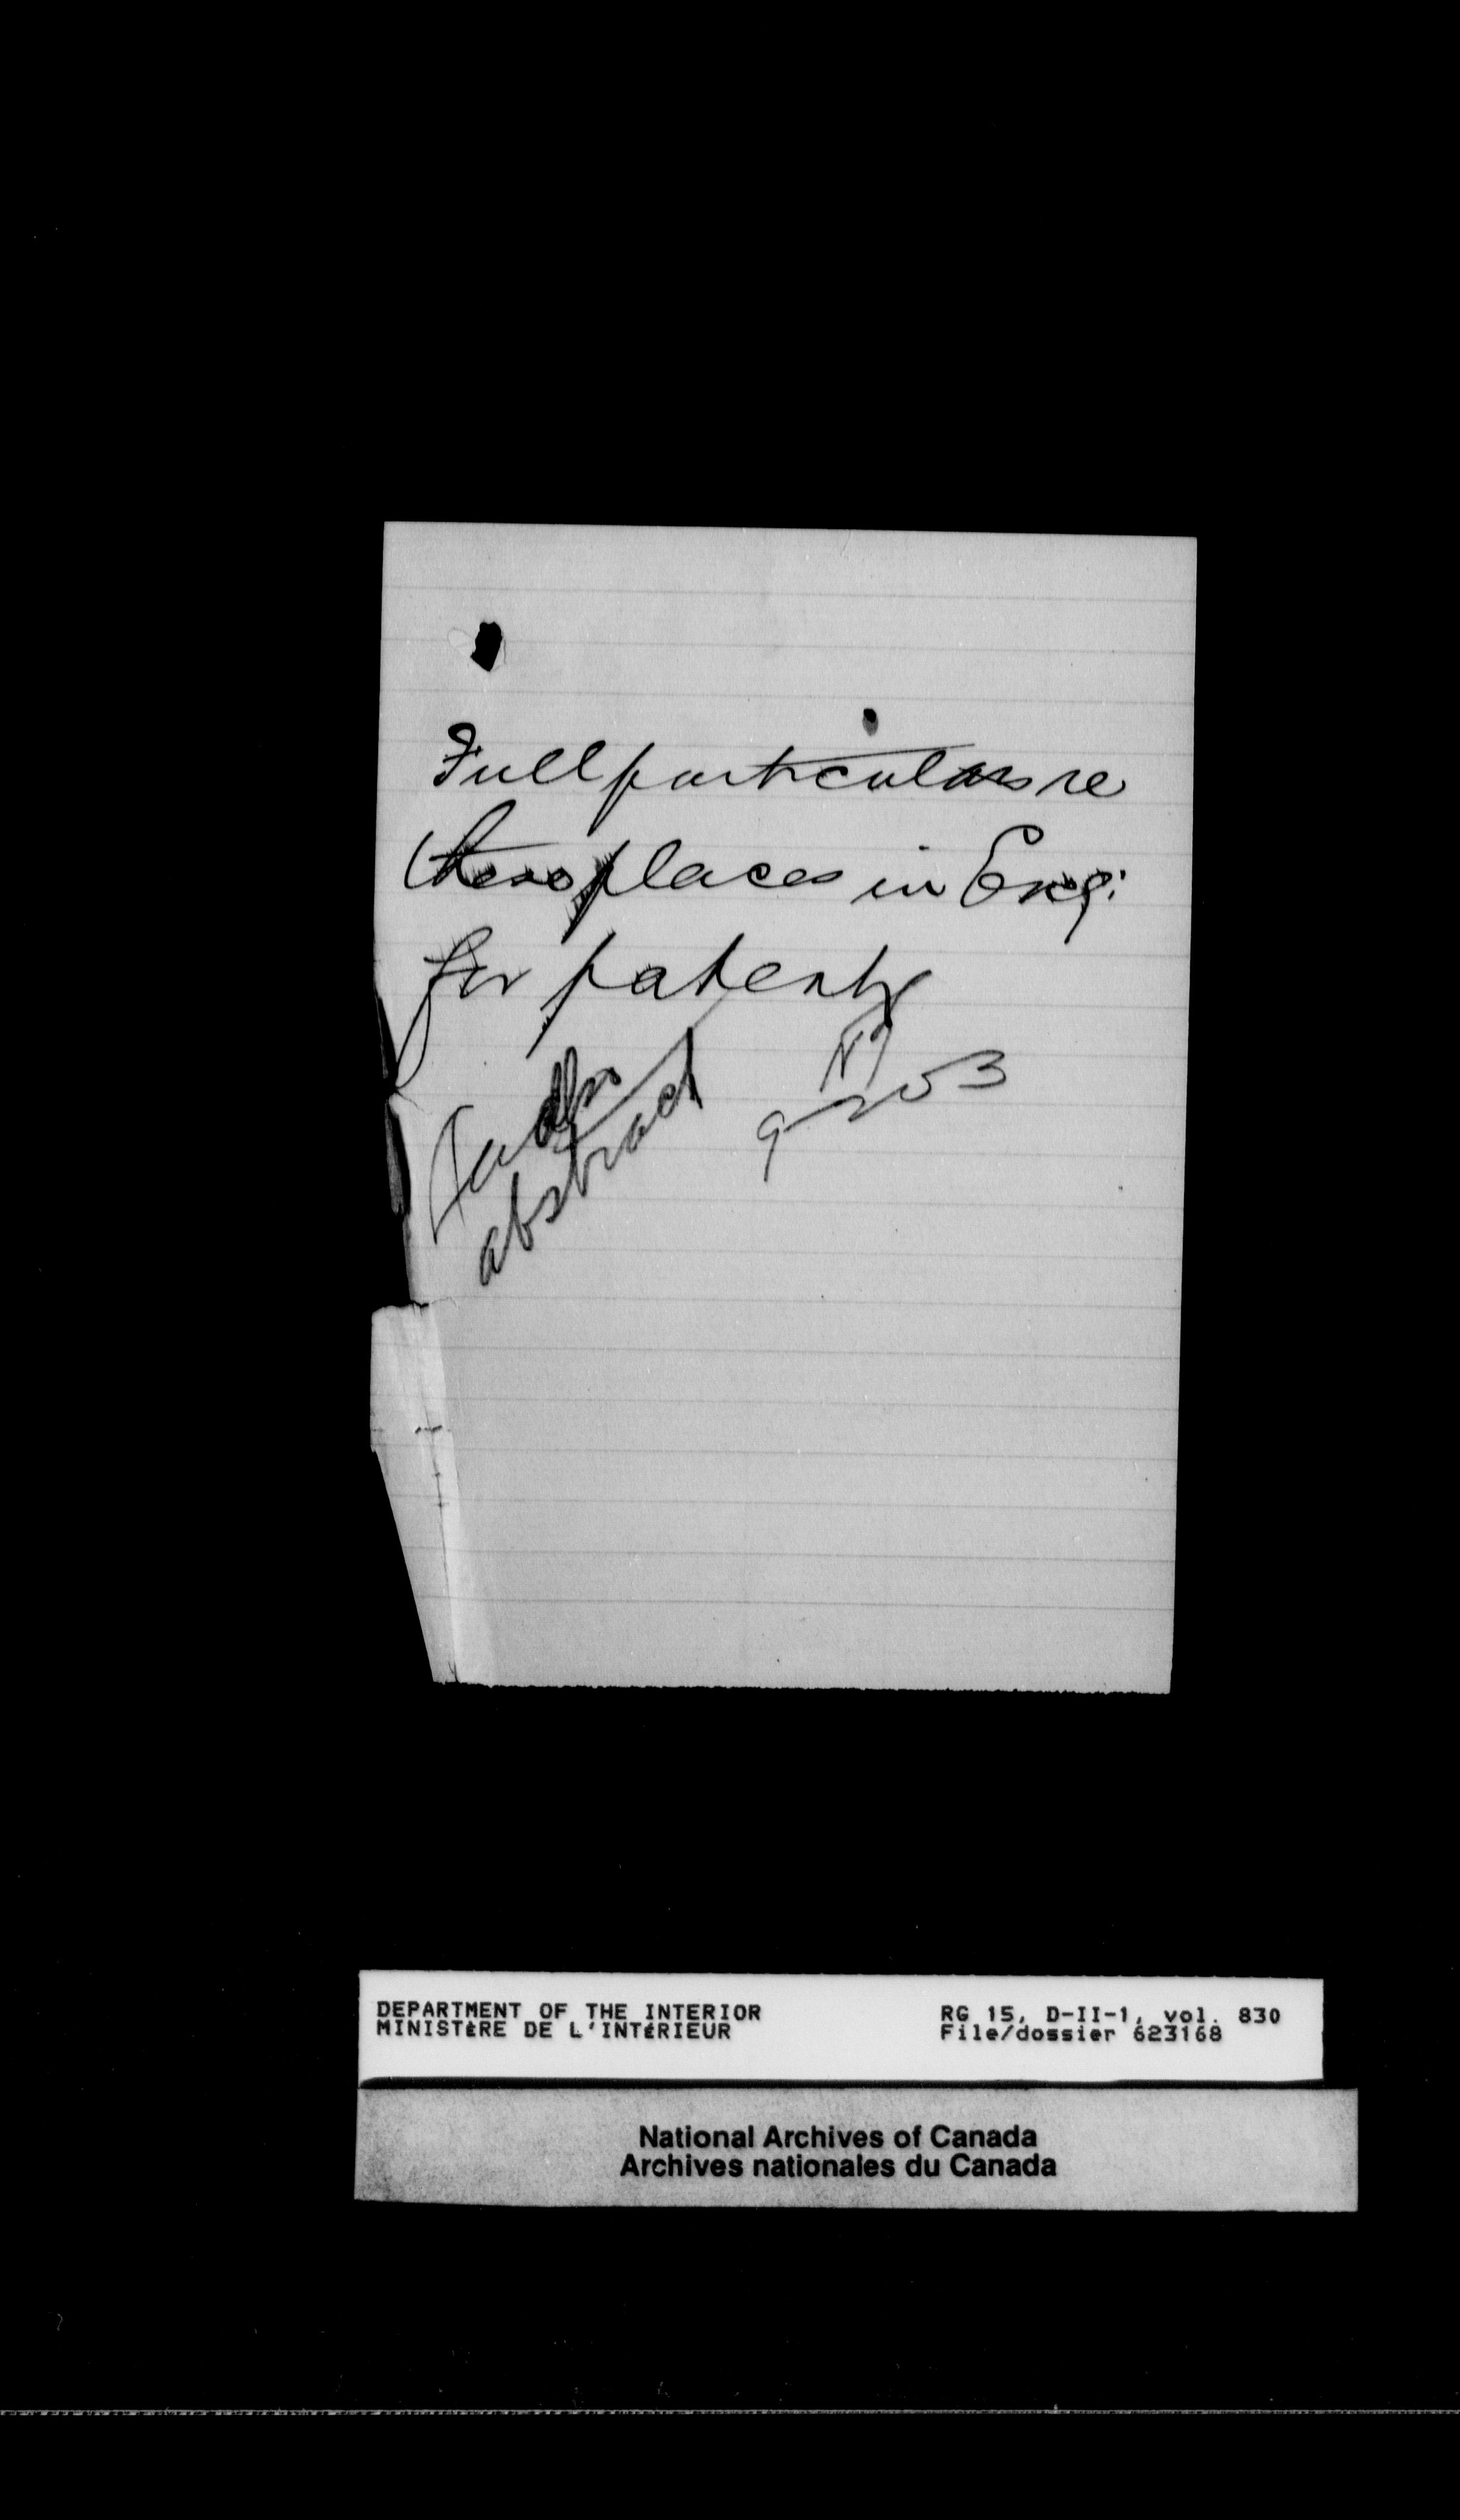 Full particulars re
these places in Eng:
for patents
abstract
DEPARTMENT OF THE INTERIOR
MINISTÈRE DE L'INTÉRIEUR
RG 15, D-II-1, vol. 830
File/dossier 623168
National Archives of Canada
Archives nationales du Canada